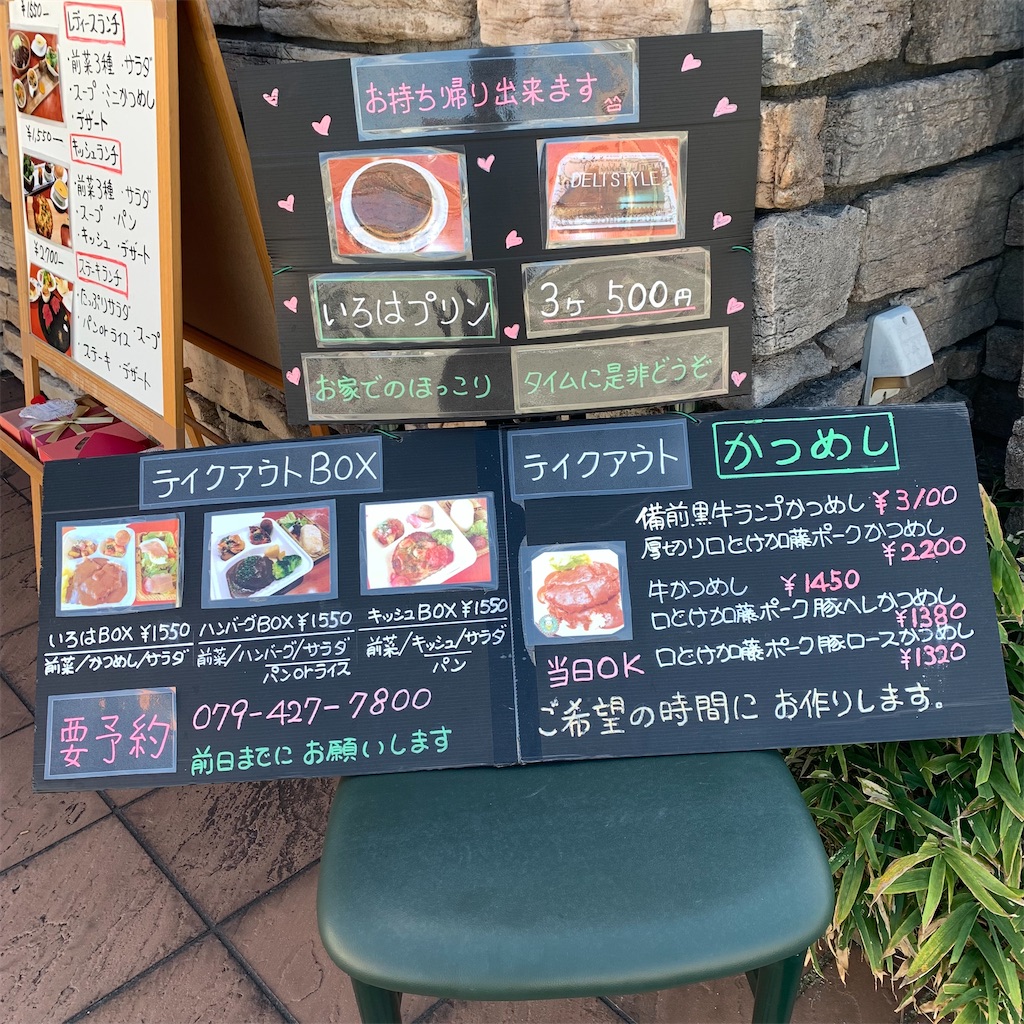 ¥1550-
レディースランチ
・前菜3種・サラダ
・スープ・ミニかつめし
・デザート
¥1,550-
キッシュランチ
・前菜3種・サラダ
・スープ・パン
・キッシュ・デザート
¥2700-
ステーキランチ
・たっぷりサラダ
・パンorライス・スープ
・ステーキ・デザート
お持ち帰り出来ます
DELI STYLE
いろはプリン
3ヶ 500円
お家でのほっこり
タイムに是非どうぞ
テイクアウトBOX
いろはBOX ¥1550
前菜/かつめし/サラダ
ハンバーグBOX ¥1550
前菜/ハンバーグ/サラダ
パンorライス
キッシュBOX ¥1550
前菜/キッシュ/サラダ
パン
要予約
079-427-7800
前日までに お願いします
テイクアウト
かつめし
備前黒牛ランプかつめし ¥3100
厚切り口とけ加藤ポークかつめし
¥2200
牛かつめし ¥1450
口とけ加藤ポーク豚ヘレかつめし
¥1380
口とけ加藤ポーク豚ロースかつめし
¥1320
当日OK
ご希望の時間に お作りします。